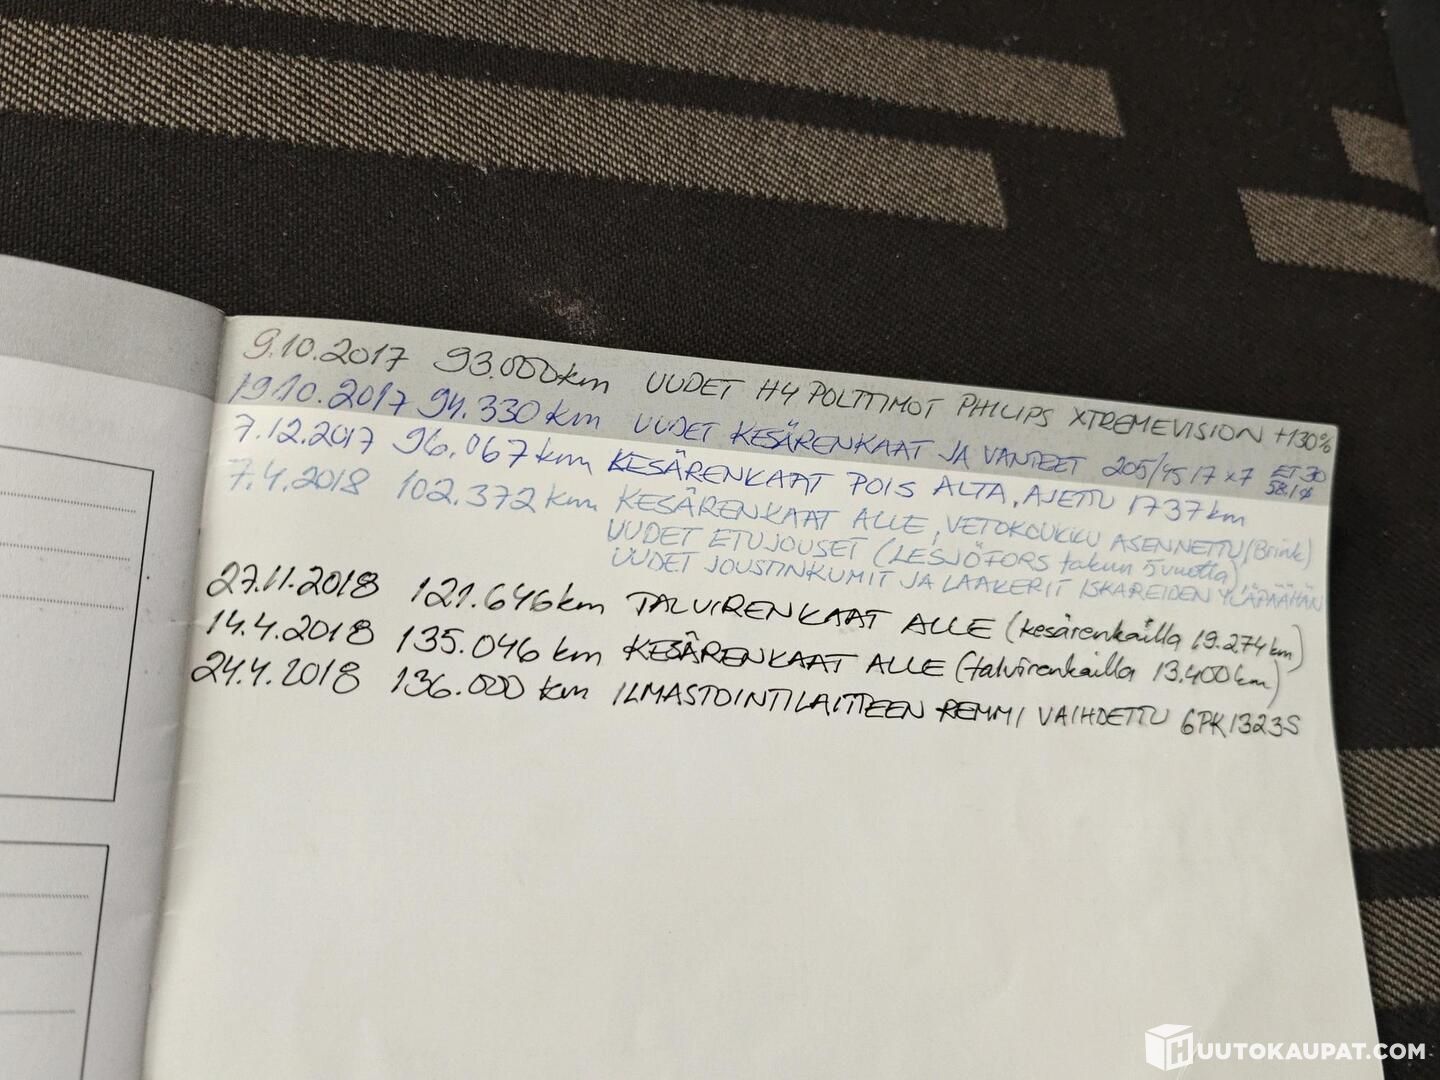 9.10.2017 93.000km UUDET H4 POLTTIMOT PHILIPS XTREMEVISION +130%
19.10.2017 94.330 km UUDET KESÄRENKAAT JA VANTEET 205/45 17 x7 ET 30 58.1 ϕ
7.12.2017 96.067km KESÄRENKAAT POIS ALTA, AJETTU 1737km
7.4.2018 102.372 km KESÄRENKAAT ALLE, VETOKOUKKU ASENNETTU (Brink)
UUDET ETUJOUSET (LESJÖFORS takuu 5vuotta)
UUDET JOUSTINKUMIT JA LAAKERIT ISKAREIDEN YLÄPÄÄHÄN
27.11.2018 121.646km TALVIRENKAAT ALLE (kesärenkailla 19.274km)
14.4.2018 135.046 km KESÄRENKAAT ALLE (talvirenkailla 13.400km)
24.4.2018 136.000 km ILMASTOINTILAITTEEN REMMI VAIHDETTU 6PK1323S
HUUTOKAUPAT.COM